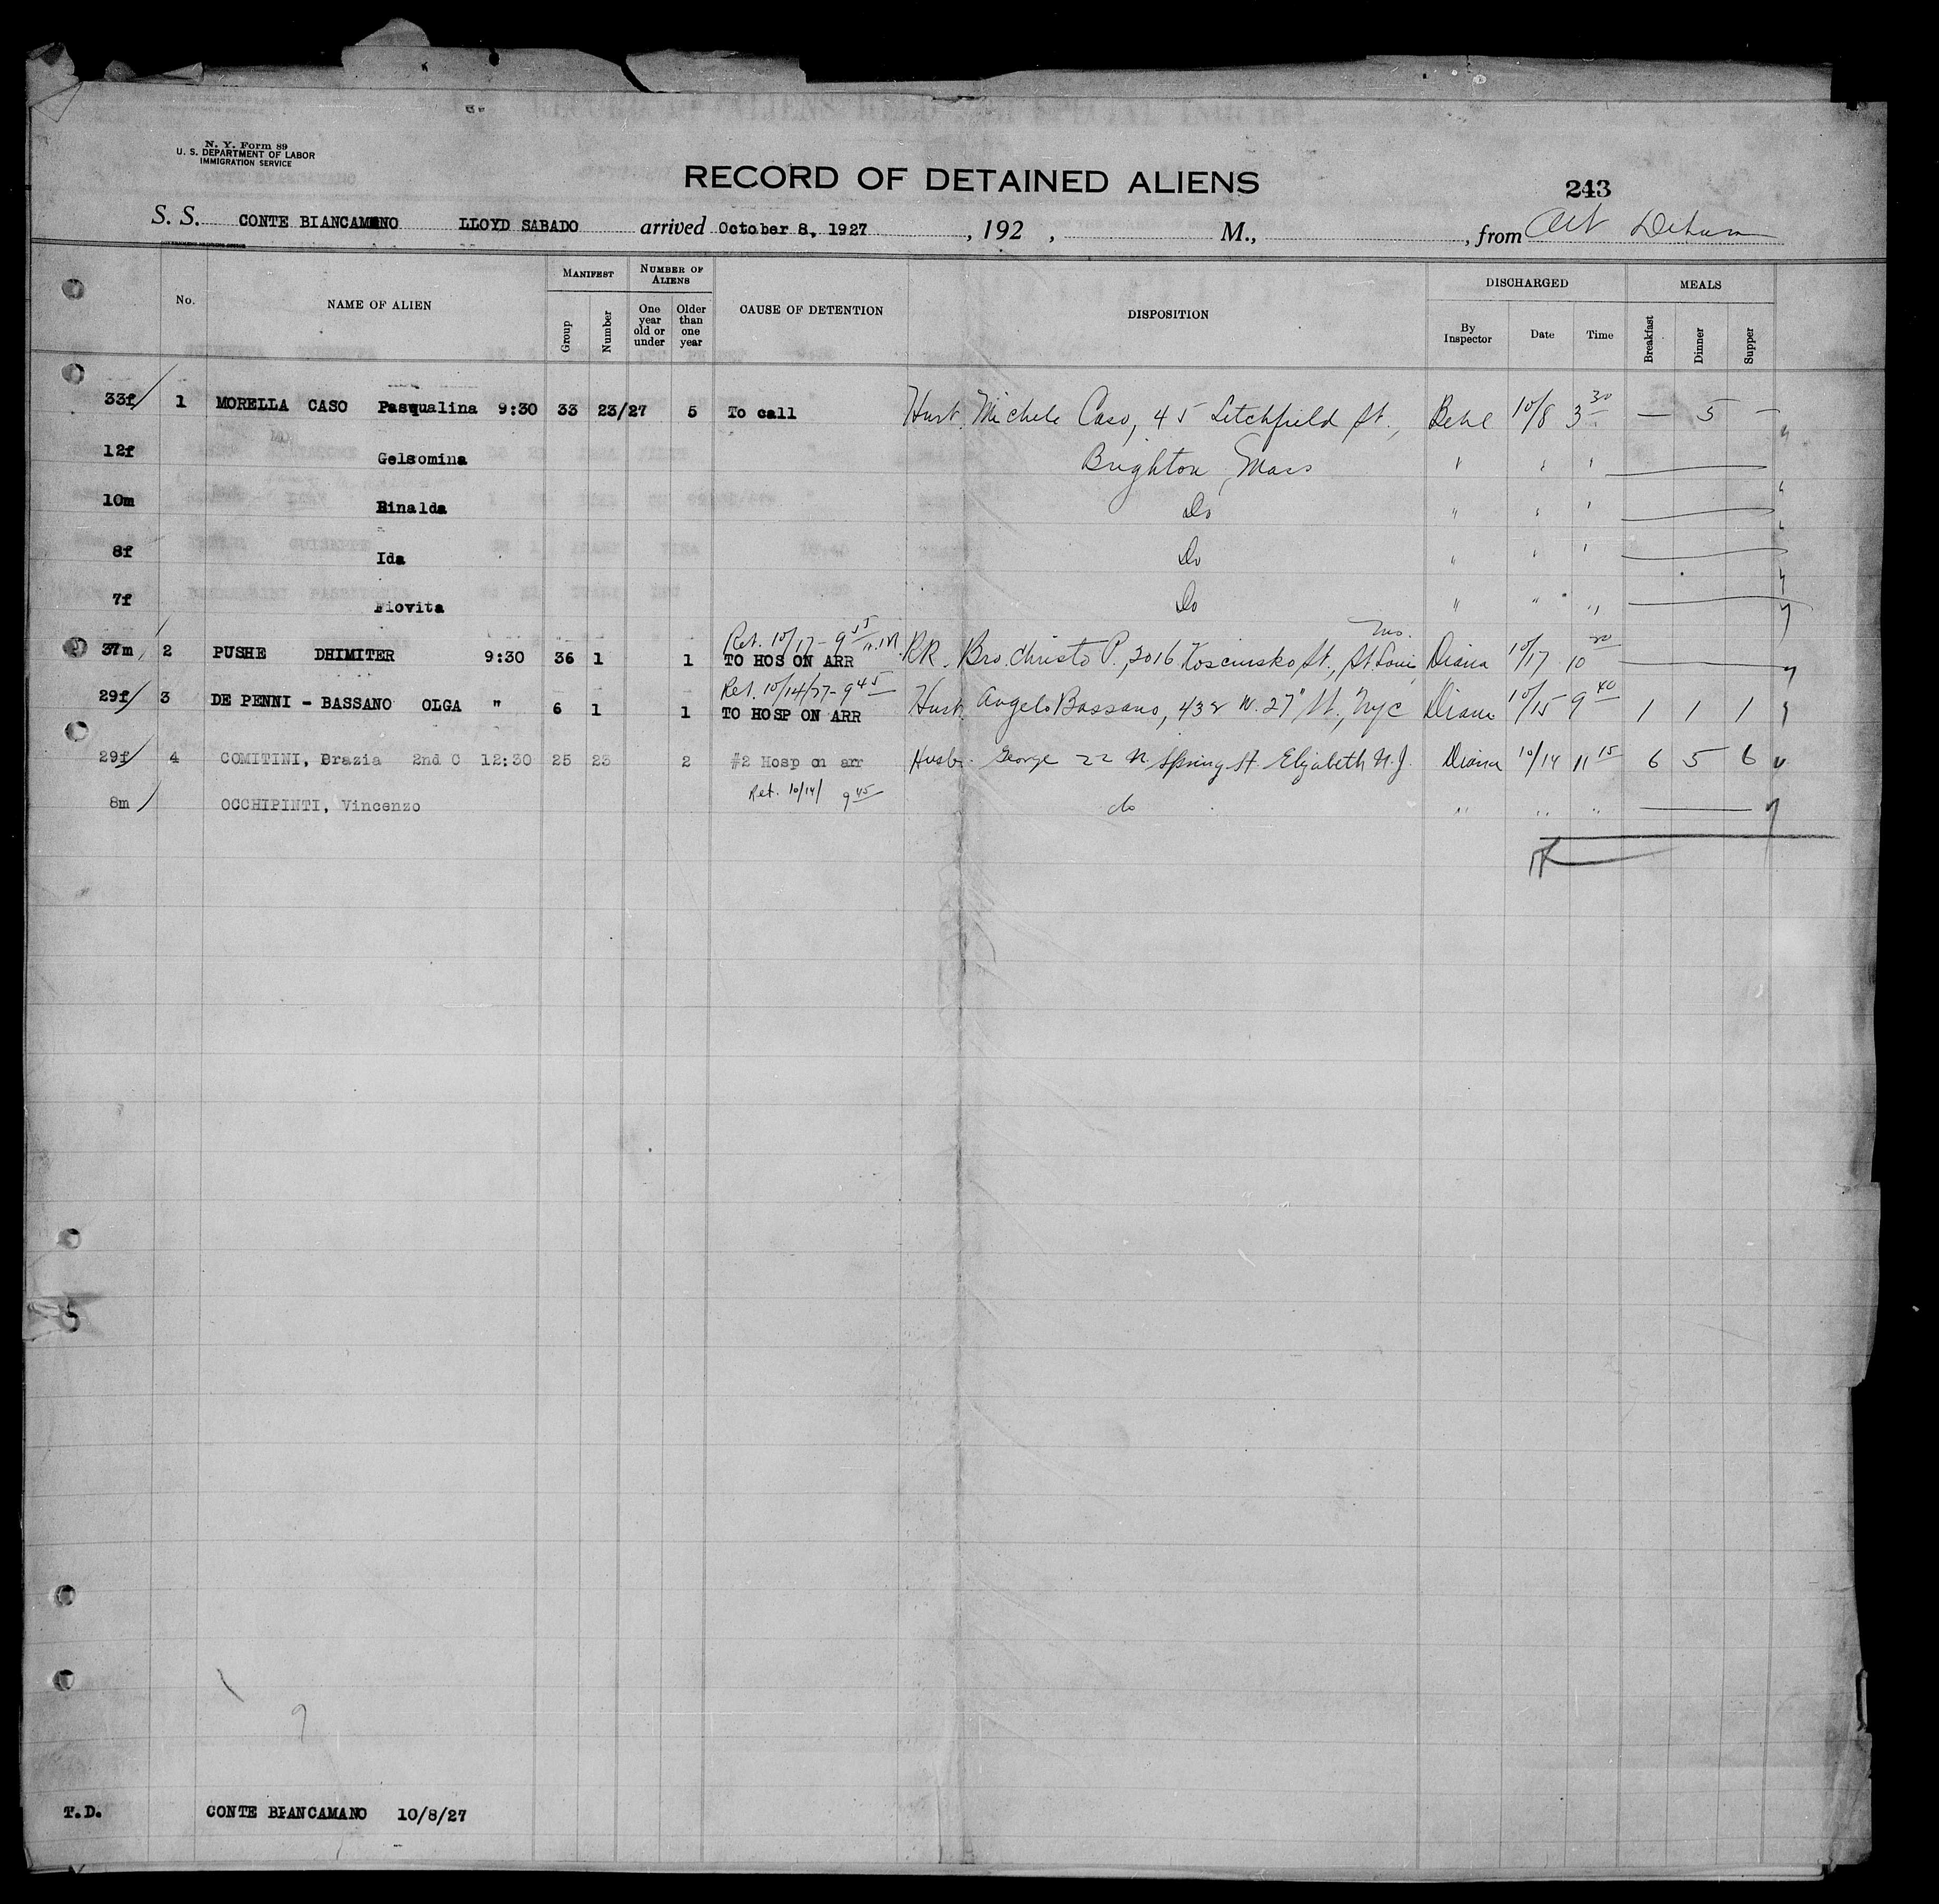 N. Y. Form 89
U. S. DEPARTMENT OF LABOR
IMMIGRATION SERVICE
RECORD OF DETAINED ALIENS
243
S. S. CONTE BIANCAMANO LLOYD SABADO arrived October 8, 1927, 192 , M., , from
No. NAME OF ALIEN MANIFEST Group Number NUMBER OF ALIENS One year old or under Older than one year CAUSE OF DETENTION DISPOSITION DISCHARGED By Inspector Date Time MEALS Breakfast Dinner Supper
33f/ 1 MORELLA CASO Pasqualina 9:30 33 23/27 5 To call Michele Caso, 45 Litchfield St., 10/8 3 30 — 5 —
12f Gelsomina Brighton, Mass " " "
10m Rinalda Do " " "
8f Ida Do " " "
7f Fiovita Do " " "
Ret. 10/17 - 9 55 A.M. Mo.
37m/ 2 PUSHE DHIMITER 9:30 36 1 1 TO HOS ON ARR RR. Bro. Christo P., 2016 Kosciusko St., St Louis, Diana 10/17 10
Ret. 10/14/27 - 9 45
29f/ 3 DE PENNI - BASSANO OLGA " 6 1 1 TO HOSP ON ARR Angelo Bassano, 432 W. 27" St., NYC Diana 10/15 9 40 1 1 1
29f/ 4 COMITINI, Brazia 2nd C 12:30 25 23 2 #2 Hosp on arr Husb. George 22 N. Spring St Elizabeth N.J. Diana 10/14 11 15 6 5 6
Ret. 10/14/ 9 45
8m/ OCCHIPINTI, Vincenzo do " " "
T.D. CONTE BIANCAMANO 10/8/27